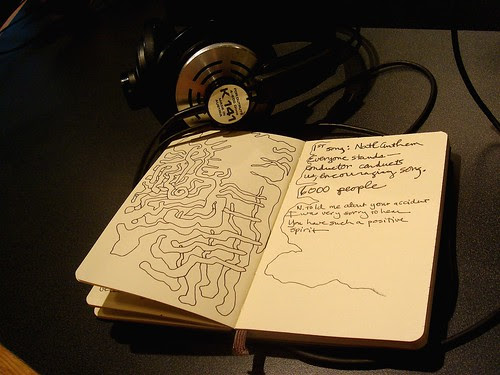 K141
1st song: Natl Anthem
Everyone stands—
conductor conducts
us, encouraging song.
16000 people
N. told me about your accident
I was very sorry to hear
You have such a positive
spirit—